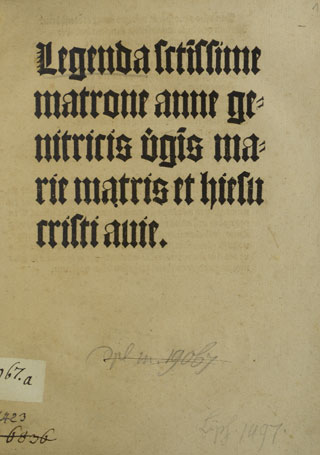 Legenda sctissime
matrone anne ge-
nitricis v̄gīs ma-
rie matris et hiesu
cristi auie.
19067
67.a
423
6836
1497.